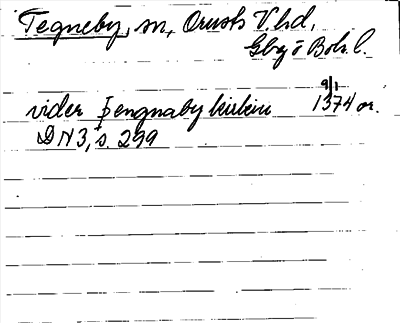 Tegneby, sn, Orusts V. hd,
Gbg o Boh. l.
9/1
vider þengnaby kirkiu 1374 or.
DN 3, s. 299